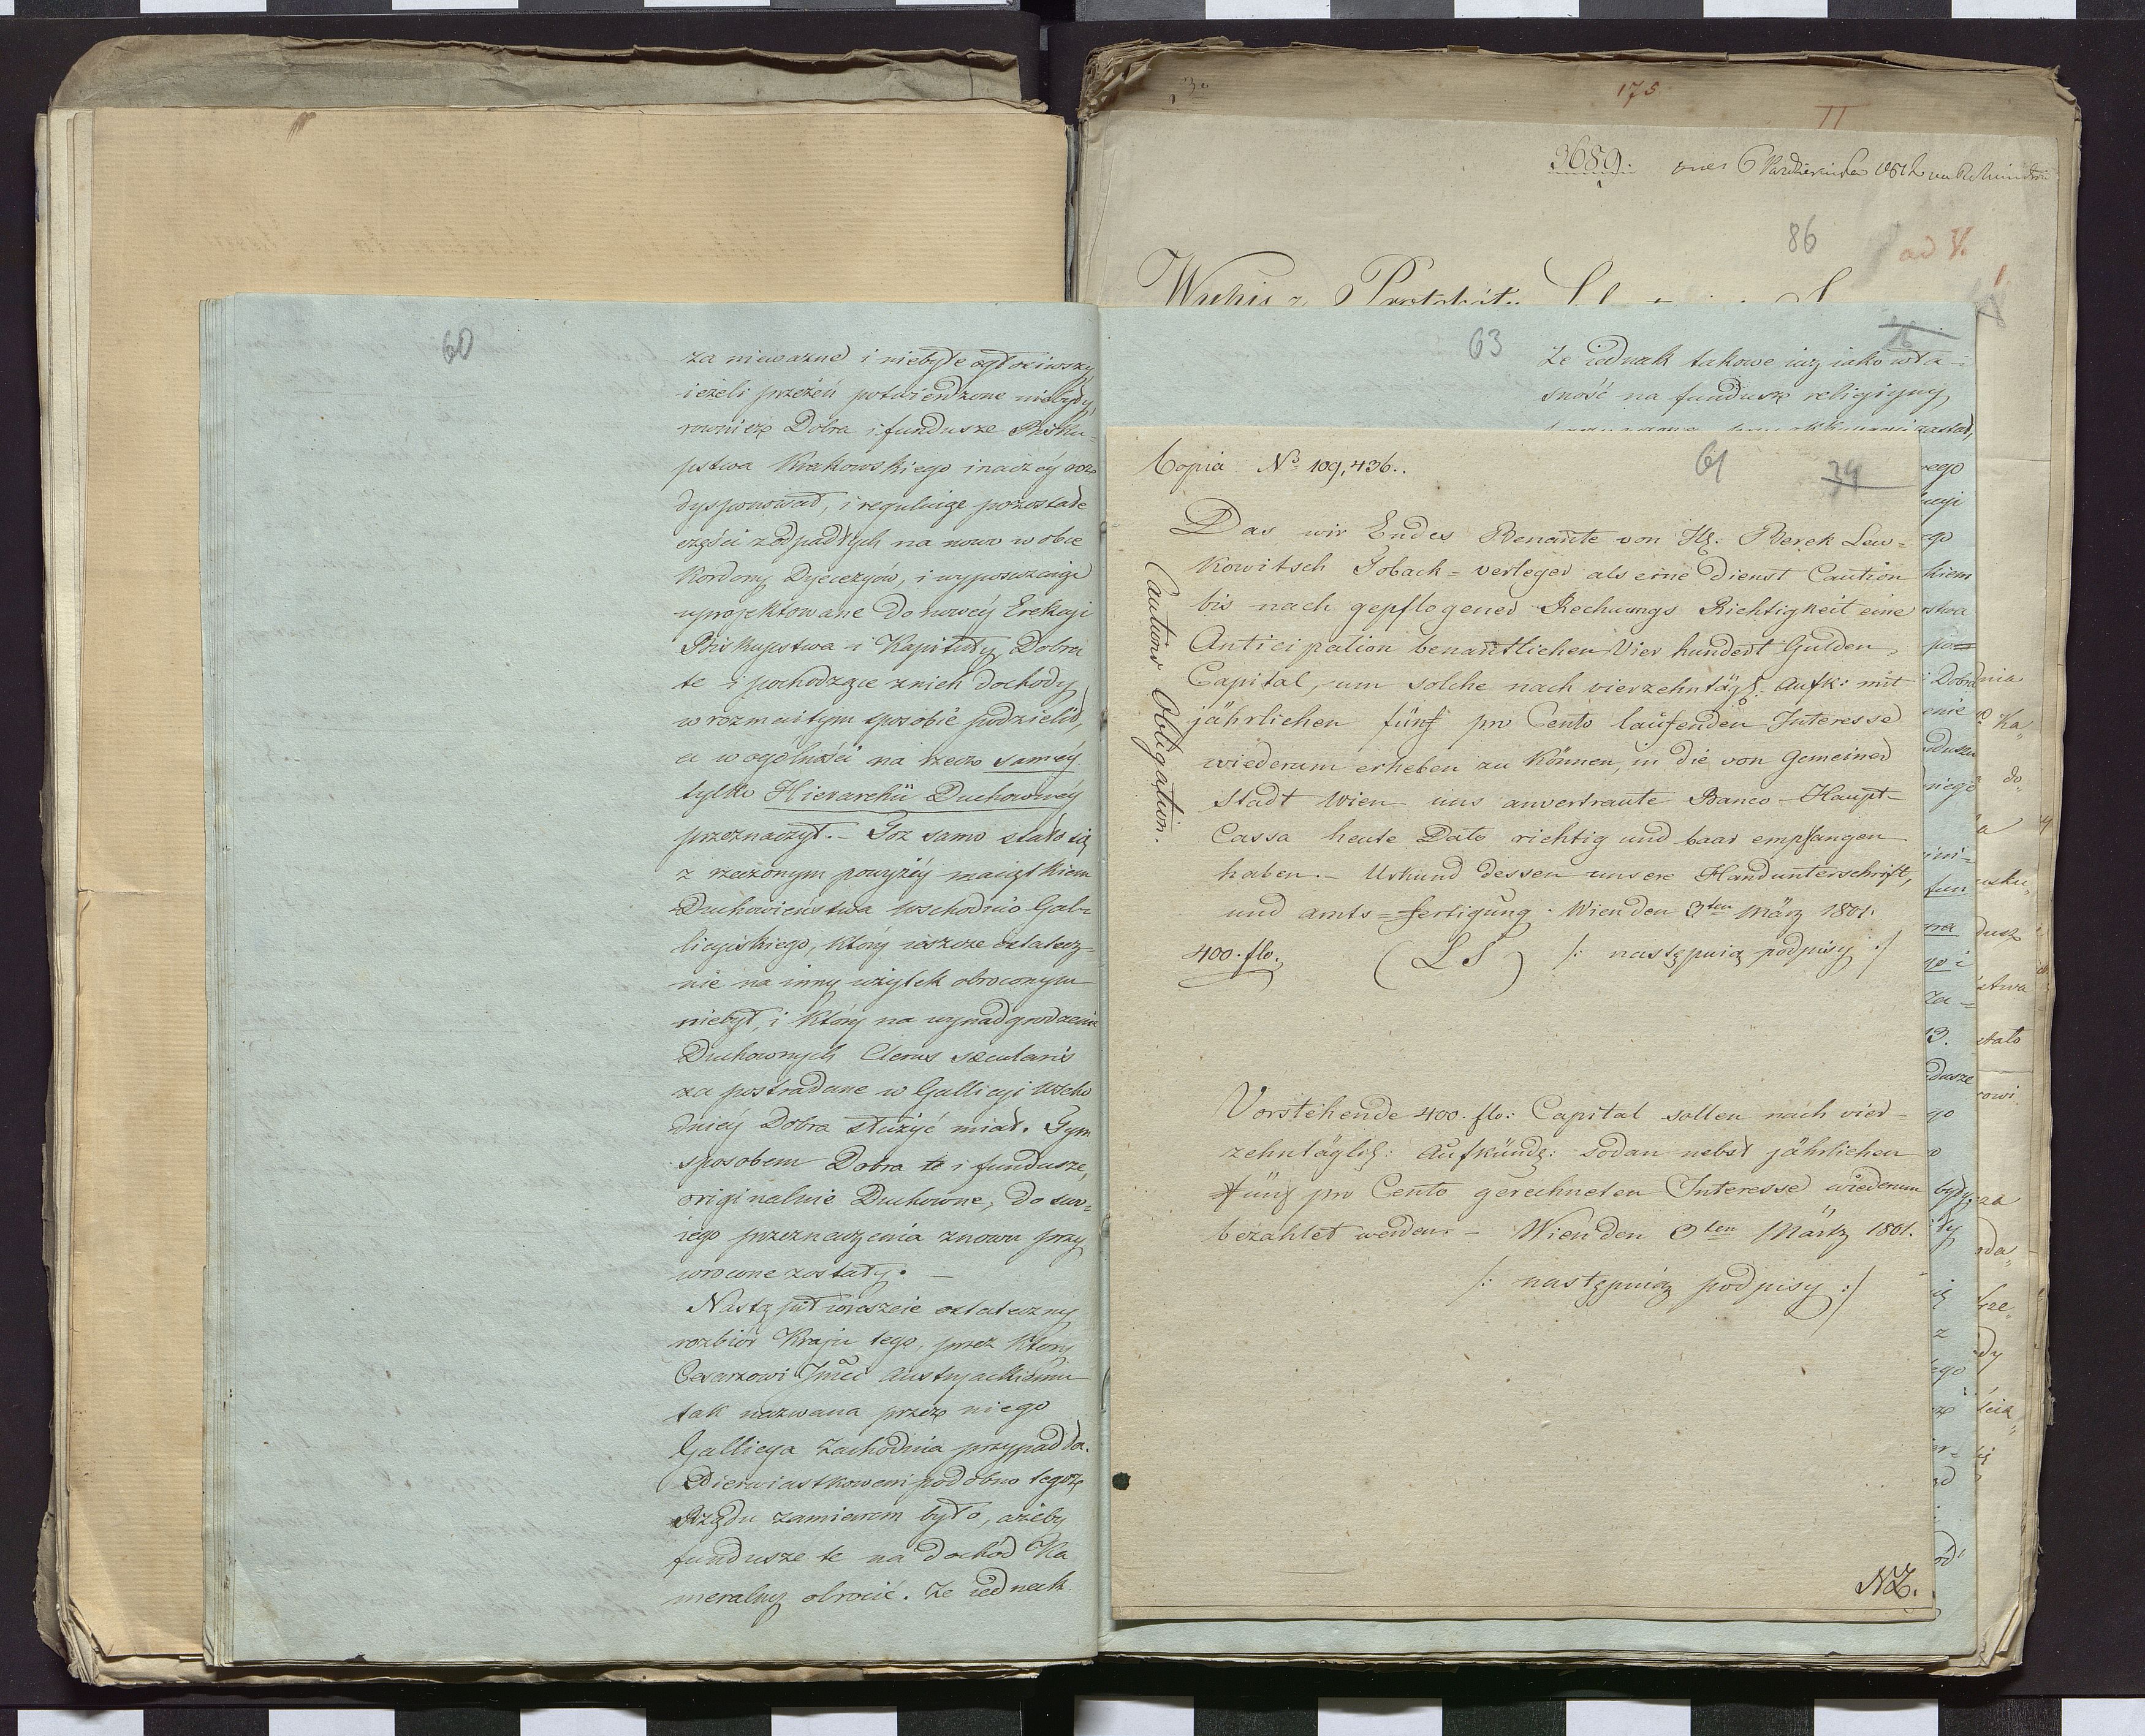 60
za nieważne i niebyłe ogłosiwszy
ieżeli przezeń potwierdzone niebędą,
rownież Dobra i fundusze Bisku=
pstwa Krakowskiego inaczéy roz=
dysponował, i reguluiąc pozostałe
części z odpadłych na nowo w obce
Kordony Dyecezyów, i wyposażaiąc
uprojektowane do nowéy Erekcyi
Biskupstwa i Kapituły, Dobra
te i pochodzące z nich dochody
w rozmaitym sposobie podzielił,
a w ogólności na rzecz saméy
tylko Hierarchii Duchownéy
przeznaczył. – Toż samo stało się
z rzeczonym powyżéy maiątkiem
Duchowieństwa Wschodnio Gal=
licyiskiego, który ieszcze ostatecz=
nie na inny użytek obroconym
niebył, i który na wynadgrodzenie
Duchownych Clerus saecularis
za postradane w Gallicyi Wscho
dniéy Dobra służyć miał. Tym
sposobem Dobra te i fundusze,
originalnie Duchowne, do swo=
iego przeznaczenia znowu przy
wrocone zostały. –
Nastąpił wreszcie ostateczny
rozbiór Kraju tego, przez który
Cesarzowi Jmci Austryackiemu
tak nazwana przez niego
Gallicya Zachodnia przypadła.
Pierwiastkowem podobno tegoż
Rządu zamiarem było, ażeby
fundusze te na dochód Ka
meralny obrocić. Że iednak
175
II
3689.
86
ad V.
63
że iednak takowe iuż iako wła=
sność na fundusz religiyny
Copia No 109,436..
61
34
Cautions Obligation.
Das wir Endes Benante von H: Berek Lew=
kowitsch Toback=verleger als eine Dienst Caution
bis nach gepflogener Rechnungs Richtigkeit eine
Anticipation benantlichen Vier hundert Gulden,
Capital, um solche nach vierzehntägl: Aufk: mit
jährlichen fünf pro Cento laufenden Interesse
wiederum erheben zu können, in die von Gemeiner
Stadt Wien uns anvertraute Banco-Haupt-
Cassa heute Dato richtig und baar empfangen
haben. – Urkund dessen unsere Handunterschrift,
und amts=fertigung. Wien den 3ten März 1801.
400. flo. (L S) /: następuią podpisy :/
Vorstehende 400. flo: Capital sollen nach vier=
zehntäglich: Aufkünd: sodan nebst jährlichen
fünf pro Cento gerechneten Interesse wiederum
bezahlet werden. – Wien den 3ten Märtz 1801.
/: następuią podpisy :/
NZ.